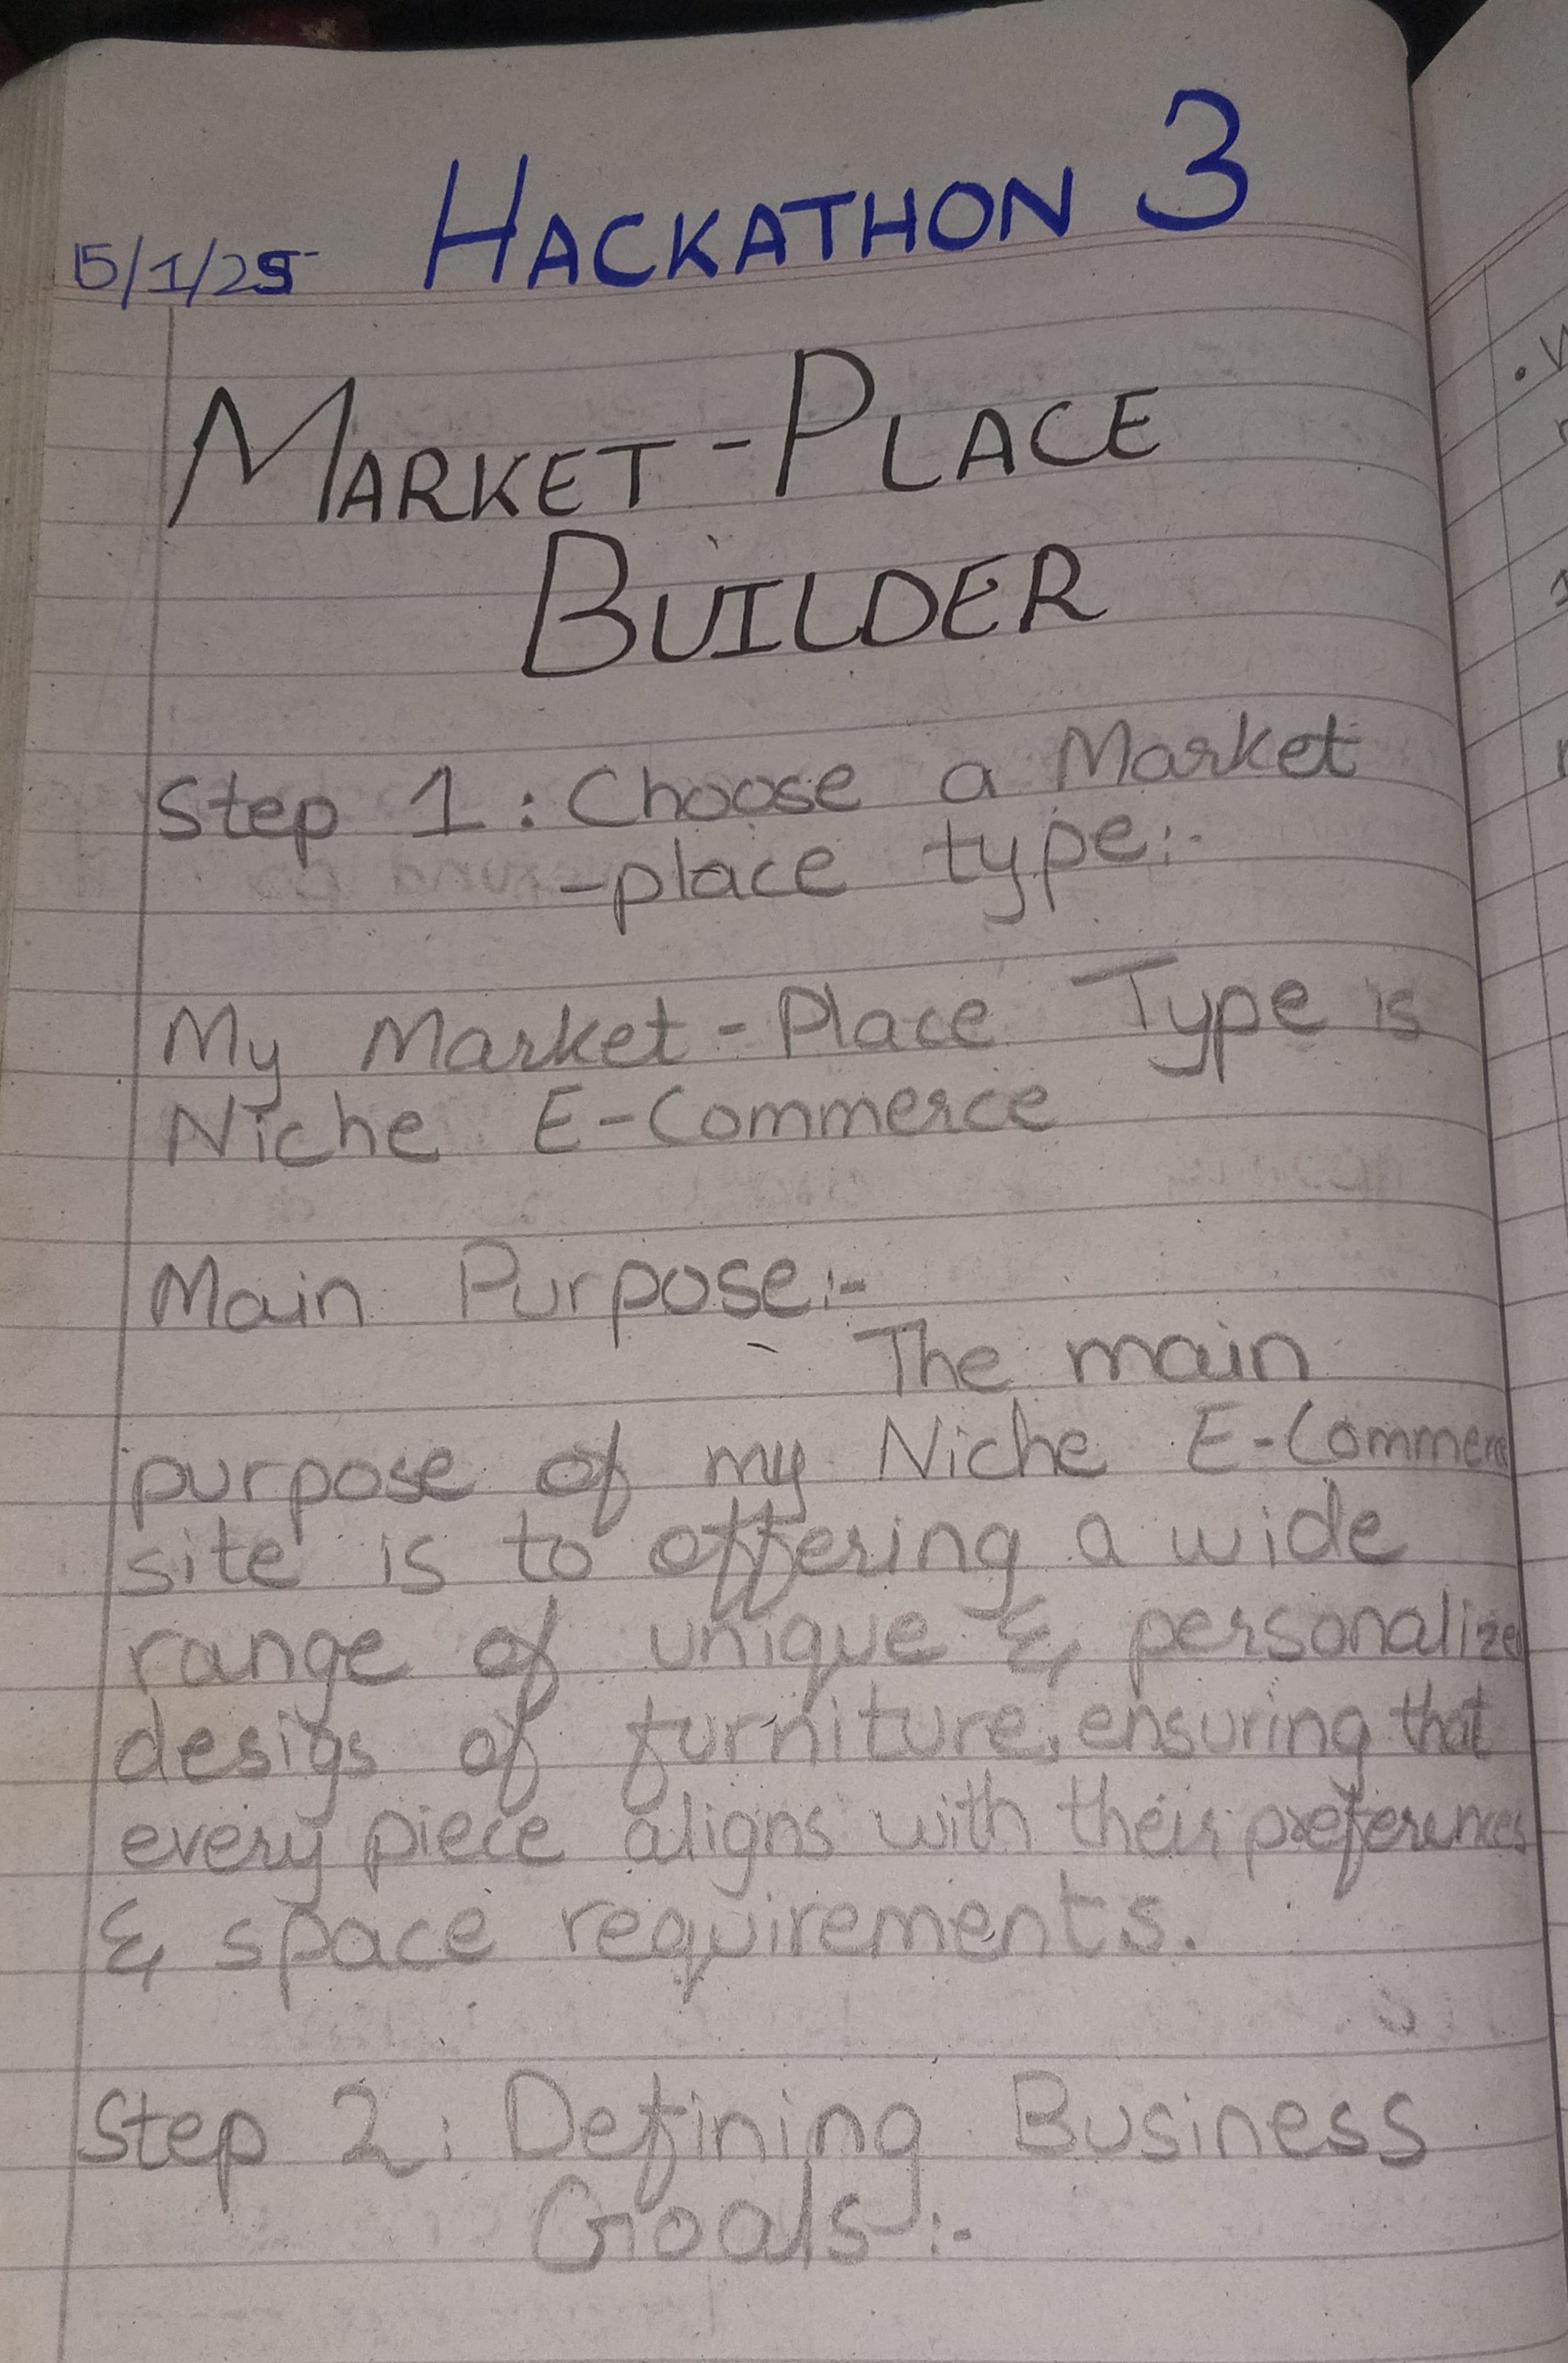 HACKATHON 3
15/1/25
MARKET-PLACE
BUILDER
Step 1: Choose a Market
-place type:-
My Market-Place Type is
Niche E-Commerce
Main Purpose:-
The main
purpose of my Niche E-Commerce
site is to offering a wide
range of unique & personalize
desigs of furniture, ensuring that
every piece aligns with their preferences
& space requirements.
Step 2: Defining Business
Goals:-